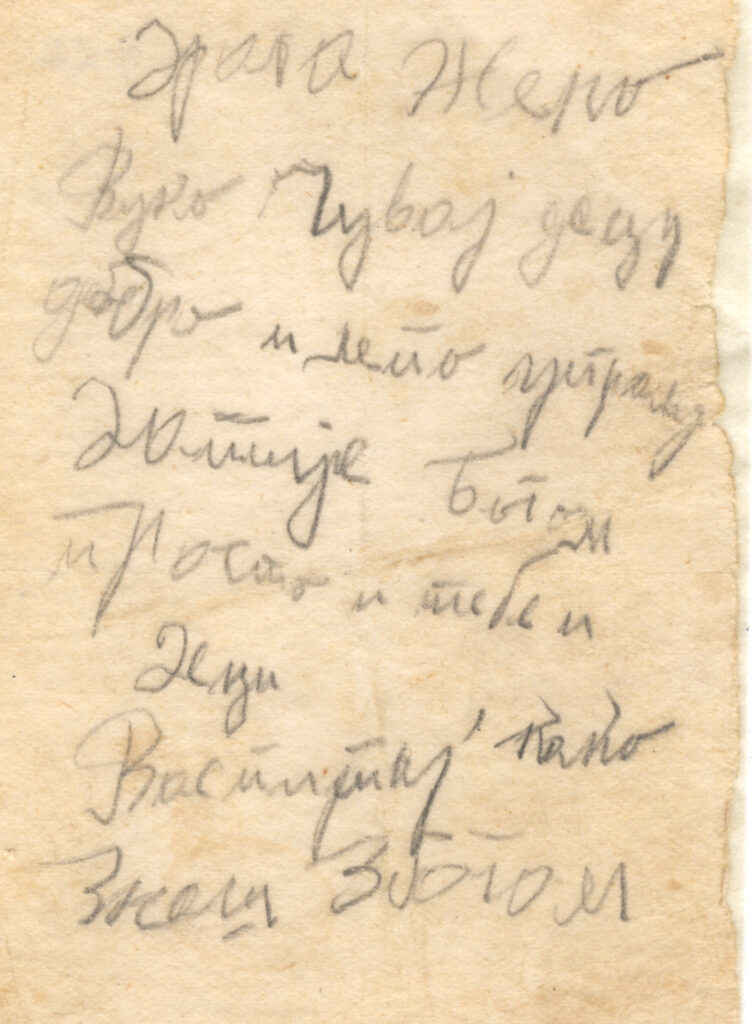 Драга Жено
Вуко Чувај децу
добро и лепо управљај
Дотије Богом
просто и тебе и
Деци
Васпитај како
Знаш Збогом